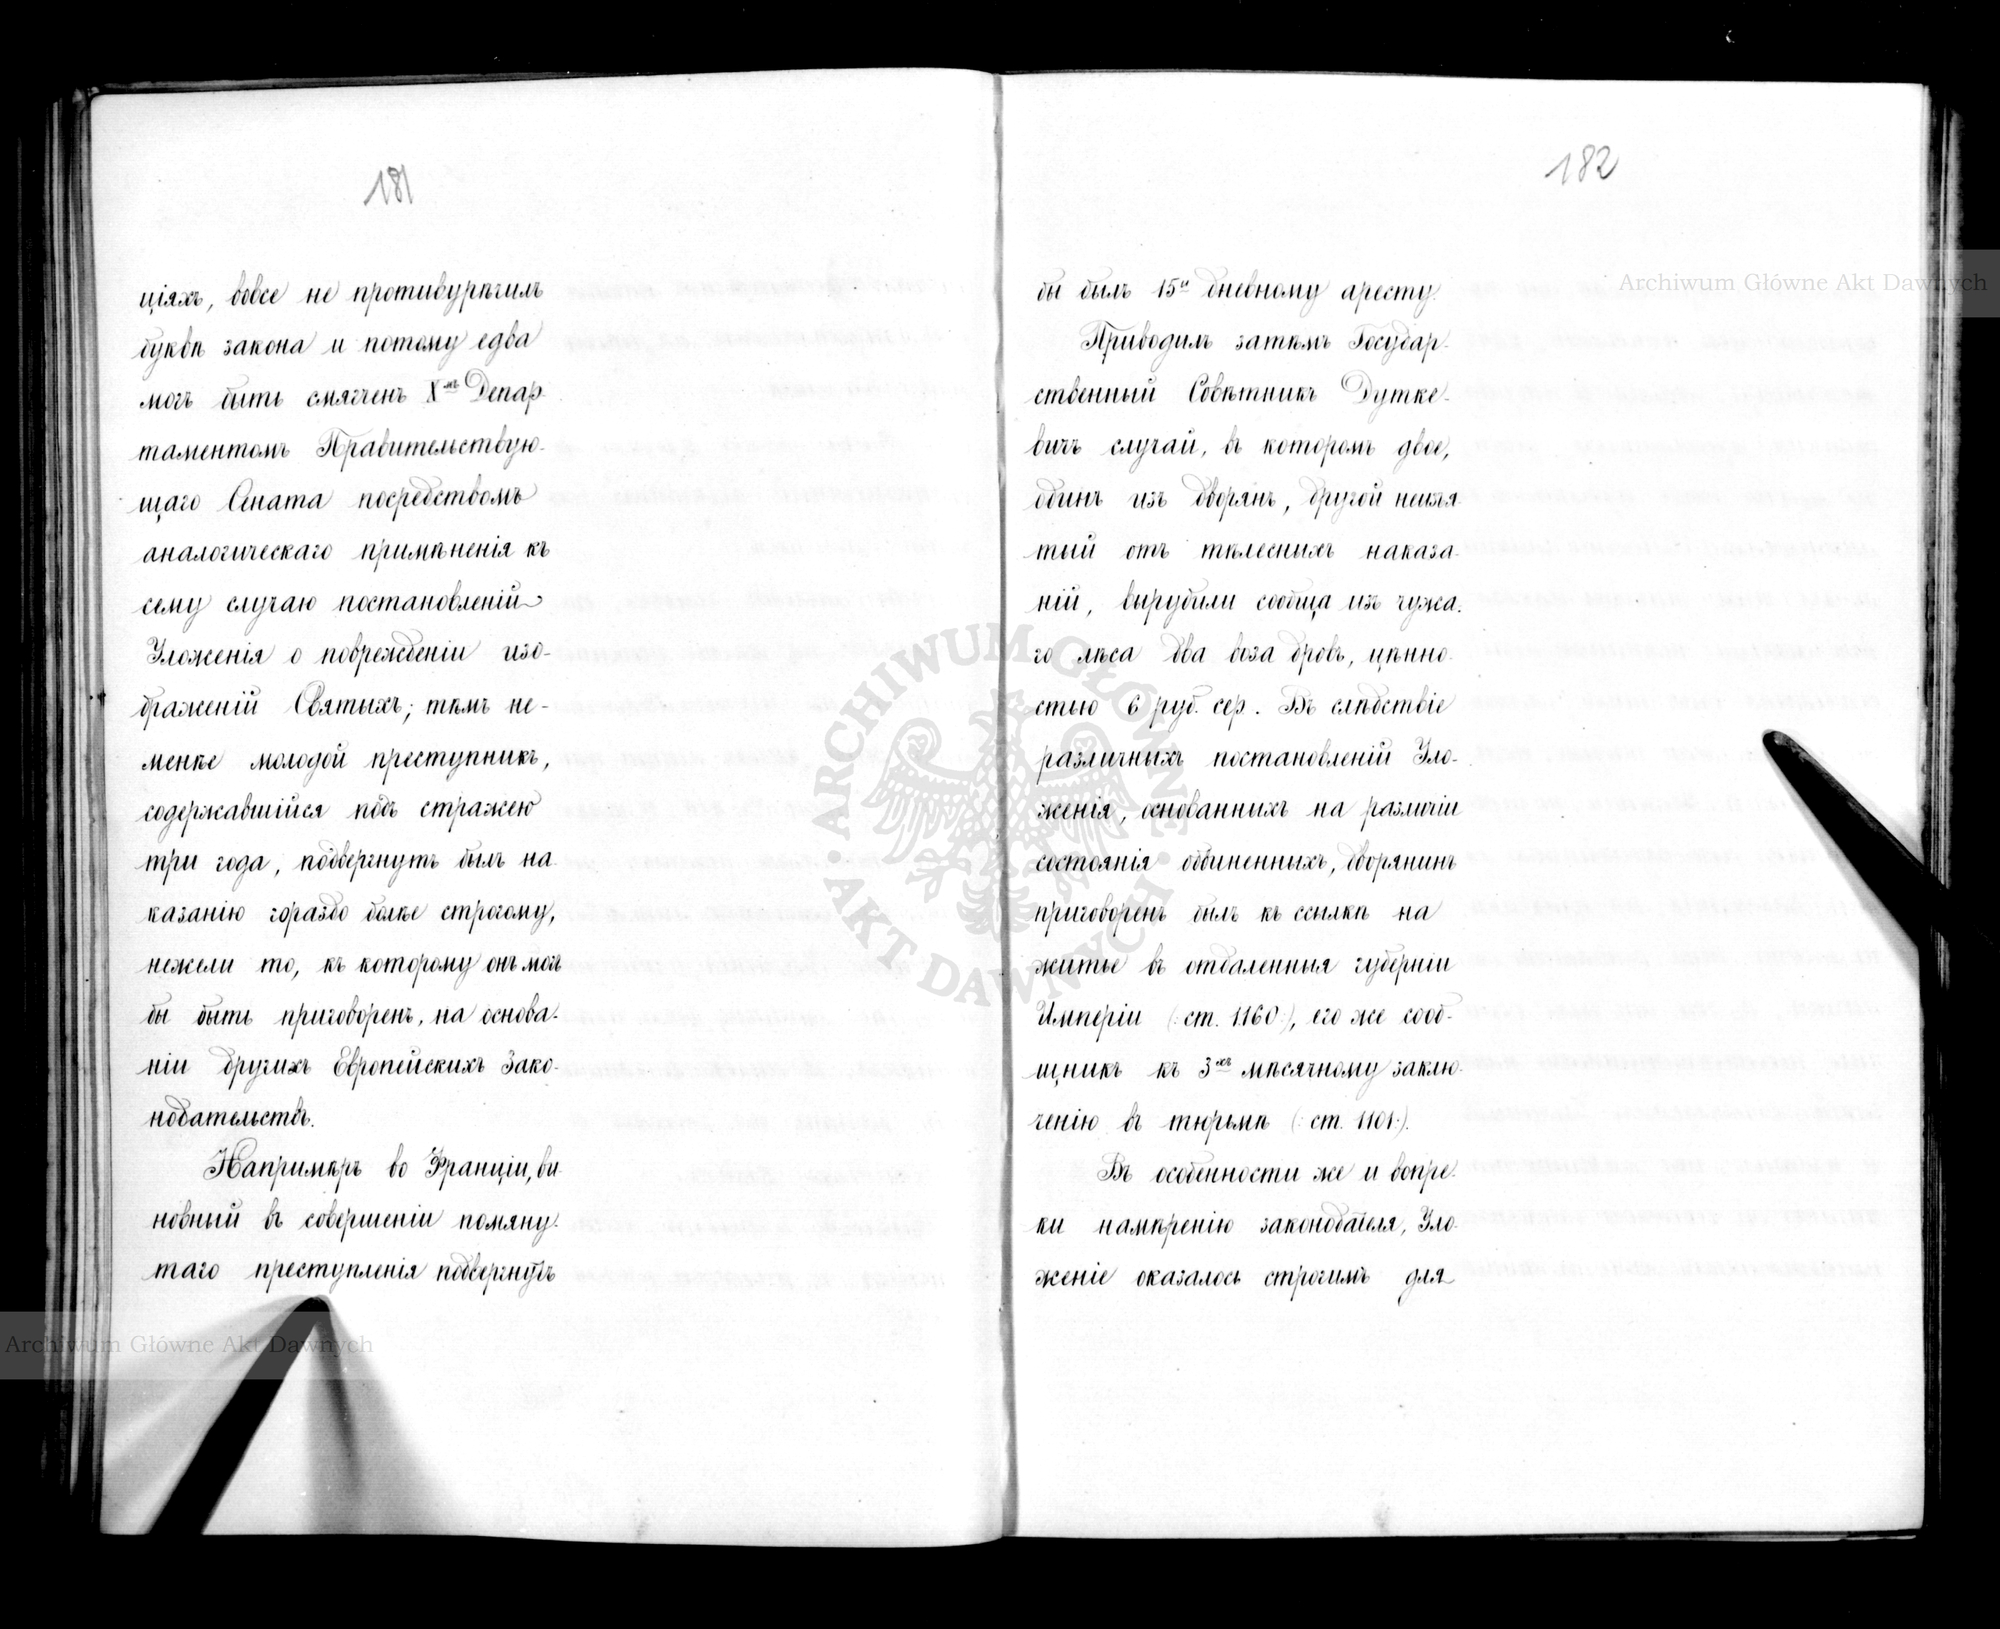 181
ціяхъ, вовсе не противурѣчилъ
буквѣ закона и потому едва
могъ быть смягченъ Xмъ Депар-
таментомъ Правительствую-
щаго Сената посредствомъ
аналогическаго примѣненія къ
сему случаю постановленій
Уложенія о поврежденіи изо-
браженій Святыхъ; тѣмъ не-
менѣе молодой преступникъ,
содержавшійся подъ стражею
три года, подвергнутъ былъ на-
казанію гораздо болѣе строгому,
нежели то, къ которому онъ могъ
бы быть приговоренъ, на основа-
ніи другихъ Европейскихъ Зако-
нодательствъ.
Напримѣръ во Франціи, ви-
новный въ совершеніи помяну-
таго преступленія подвергнутъ
182
бы былъ 15и дневному аресту.
Приводилъ затѣмъ Государ-
ственный Совѣтникъ Дутке-
вичъ случай, въ которомъ двое,
одинъ изъ дворянъ, другой неизъя-
тый отъ тѣлесныхъ наказа-
ній, вырубили сообща изъ чужа-
го лѣса два воза дровъ, цѣнно-
стью 6 руб. сер. Въ слѣдствіе
различныхъ постановленій Уло-
женія, основанныхъ на различіи
состоянія обвиненныхъ, дворянинъ
приговоренъ былъ къ ссылкѣ на
житье въ отдаленныя губерніи
Имперіи (: ст. 1160 :), его же сооб-
щникъ къ 3хъ мѣсячному заклю-
ченію въ тюрьмѣ (: ст. 1101 :).
Въ особенности же и вопре-
ки намѣренію законодателя, Уло-
женіе оказалось строгимъ для
Archiwum Główne Akt Dawnych
Archiwum Główne Akt Dawnych
ARCHIWUM GŁÓWNE · AKT DAWNYCH ·